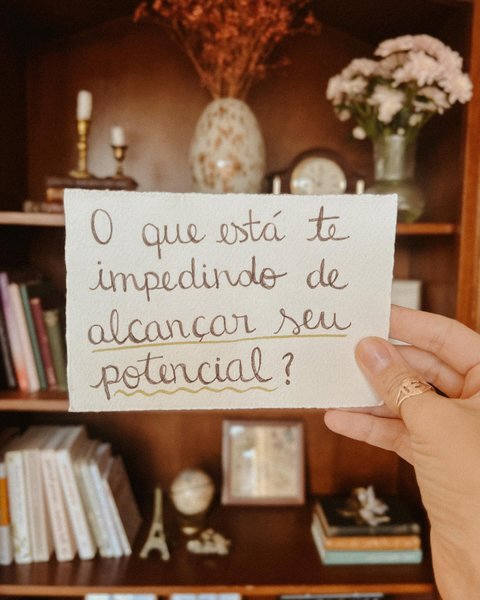 O que está te
impedindo de
alcançar seu
potencial?